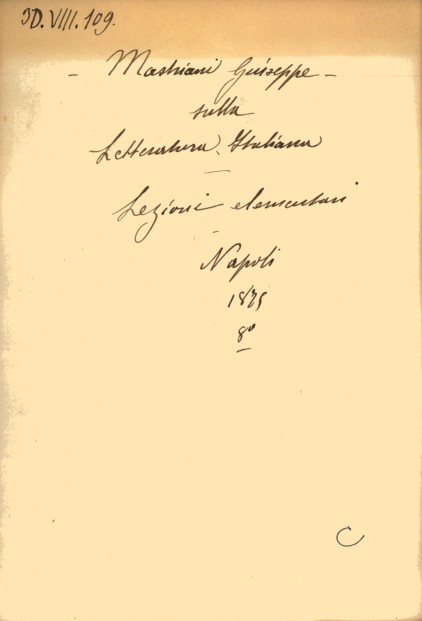 JD.VIII.109.
– Mastriani Giuseppe –
sulla
Letteratura Italiana
Lezioni elementari
Napoli
1875
8º
C